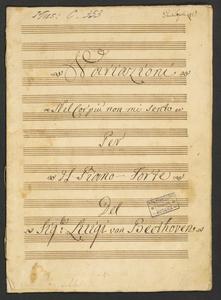 Mus: O. 
Variazioni
Nel Cor più non mi sento
Per
Il Piano-Forte
Del
Sigr. Luigi van Beethoven